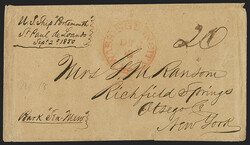 U.S. Ship Portsmouth
St Paul de Loando
Sept 2d 1850
20
Mrs G. M. Ransom
Richfield Springs
Otsego Co
New York
Bark "Sea Mew"